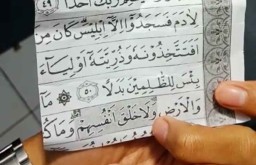 رَبُّكَ أَحَدًا ٤٩
لِأٓدَمَ فَسَجَدُوٓا۟ إِلَّآ إِبْلِيسَ كَانَ مِنَ
أَفَتَتَّخِذُونَهُۥ وَذُرِّيَّتَهُۥٓ أَوْلِيَآءَ
بِئْسَ لِلظَّٰلِمِينَ بَدَلًا ٥٠ ۞ مَّآ
وَٱلْأَرْضِ وَلَا خَلْقَ أَنفُسِهِمْ وَمَا